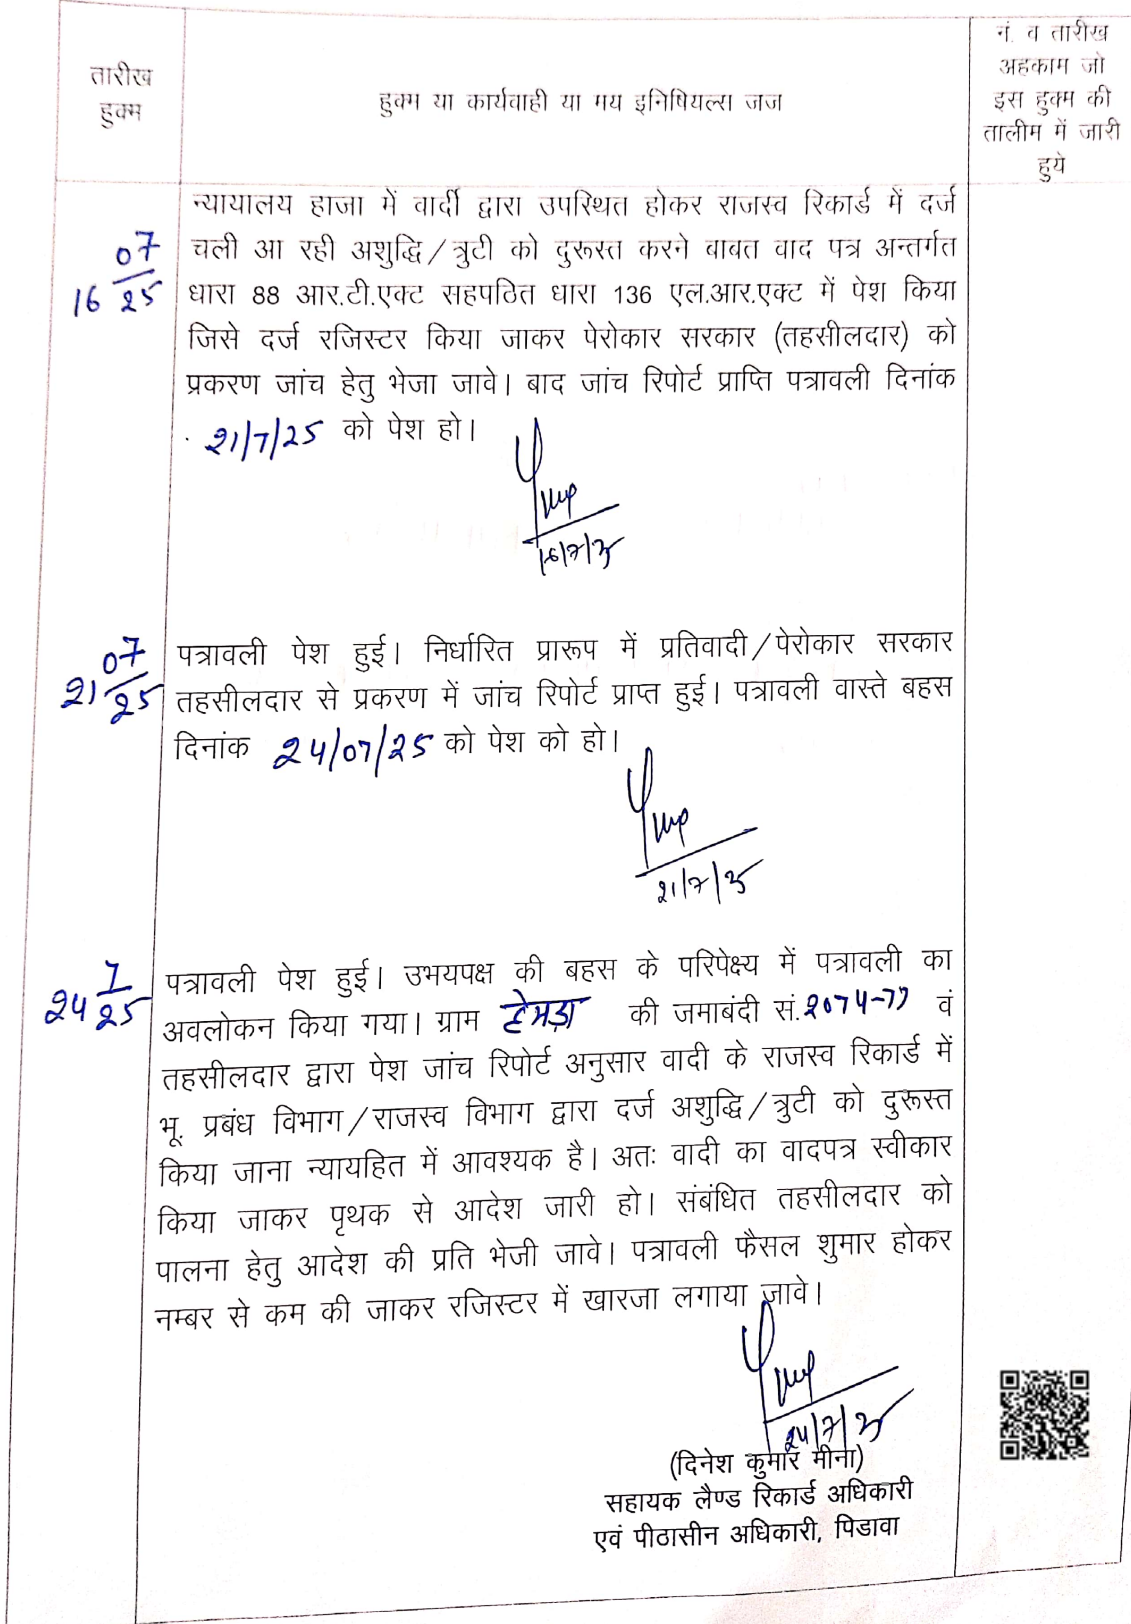 तारीख
हुक्म
हुक्म या कार्यवाही या मय इनिषियल्स जज
नं. व तारीख
अहकाम जो
इस हुक्म की
तालीम में जारी
हुये
16 07/25
न्यायालय हाजा में वार्दी द्वारा उपस्थित होकर राजस्व रिकार्ड में दर्ज
चली आ रही अशुद्धि/त्रुटी को दुरूस्त करने बाबत वाद पत्र अन्तर्गत
धारा 88 आर.टी.एक्ट सहपठित धारा 136 एल.आर.एक्ट में पेश किया
जिसे दर्ज रजिस्टर किया जाकर पेरोकार सरकार (तहसीलदार) को
प्रकरण जांच हेतु भेजा जावे। बाद जांच रिपोर्ट प्राप्ति पत्रावली दिनांक
21/7/25 को पेश हो।
16/7/25
21 07/25
पत्रावली पेश हुई। निर्धारित प्रारूप में प्रतिवादी/पेरोकार सरकार
तहसीलदार से प्रकरण में जांच रिपोर्ट प्राप्त हुई। पत्रावली वास्ते बहस
दिनांक 24/07/25 को पेश को हो।
21/7/25
24 7/25
पत्रावली पेश हुई। उभयपक्ष की बहस के परिपेक्ष्य में पत्रावली का
अवलोकन किया गया। ग्राम की जमाबंदी सं. 2074-77 वं
तहसीलदार द्वारा पेश जांच रिपोर्ट अनुसार वादी के राजस्व रिकार्ड में
भू. प्रबंध विभाग/राजस्व विभाग द्वारा दर्ज अशुद्धि/त्रुटी को दुरूस्त
किया जाना न्यायहित में आवश्यक है। अतः वादी का वादपत्र स्वीकार
किया जाकर पृथक से आदेश जारी हो। संबंधित तहसीलदार को
पालना हेतु आदेश की प्रति भेजी जावे। पत्रावली फैसल शुमार होकर
नम्बर से कम की जाकर रजिस्टर में खारजा लगाया जावे।
24/7/25
(दिनेश कुमार मीना)
सहायक लैण्ड रिकार्ड अधिकारी
एवं पीठासीन अधिकारी, पिडावा